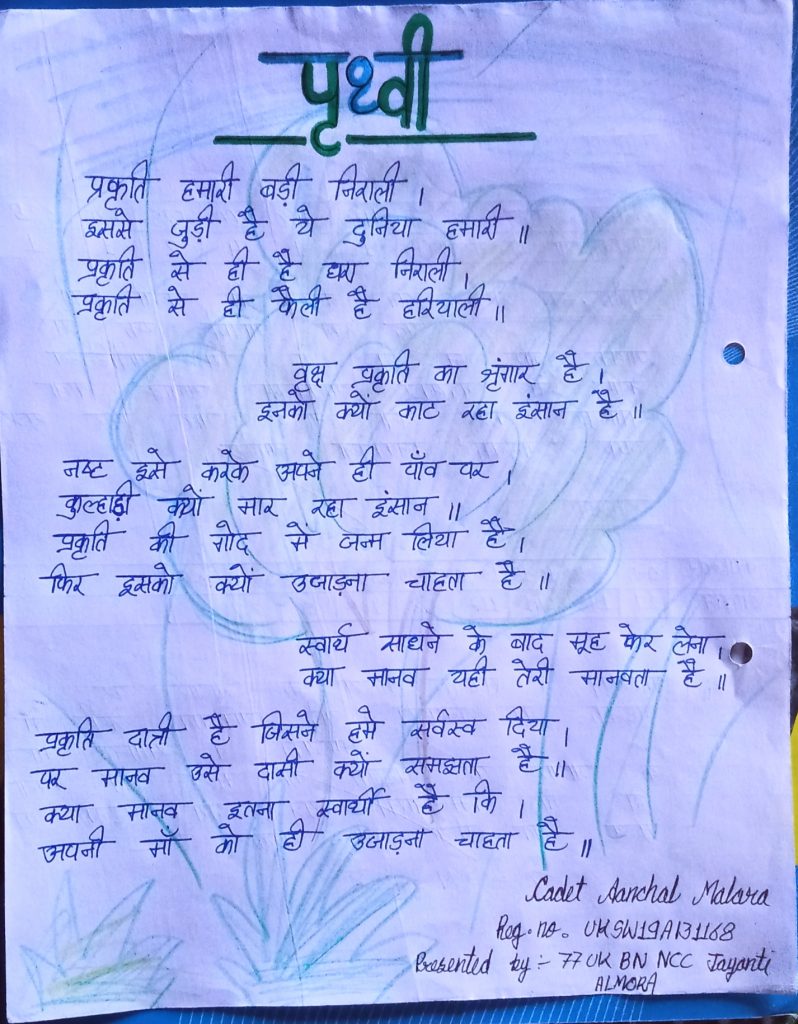 पृथ्वी
प्रकृति हमारी बड़ी निराली ।
इससे जुड़ी है ये दुनिया हमारी ॥
प्रकृति से ही है धरा निराली ,
प्रकृति से ही फैली है हरियाली ॥
वृक्ष प्रकृति का श्रृंगार है ।
इनको क्यों काट रहा इंसान है ॥
नष्ट इसे करके अपने ही पाँव पर ,
कुल्हाड़ी क्यों मार रहा इंसान ॥
प्रकृति की गोद में जन्म लिया है ,
फिर इसको क्यों उजाड़ना चाहता है ॥
स्वार्थ साधने के बाद मूह फेर लेना ,
क्या मानव यही तेरी मानवता है ॥
प्रकृति दात्री है जिसने हमे सर्वस्व दिया ,
पर मानव उसे दासी क्यों समझता है ॥
क्या मानव इतना स्वार्थी है कि ,
अपनी माँ को ही उजाड़ना चाहता है ॥
Cadet Aanchal Malara
Reg. no. UKSW19A131168
Presented by :- 77 UK BN NCC Jayanti
ALMORA